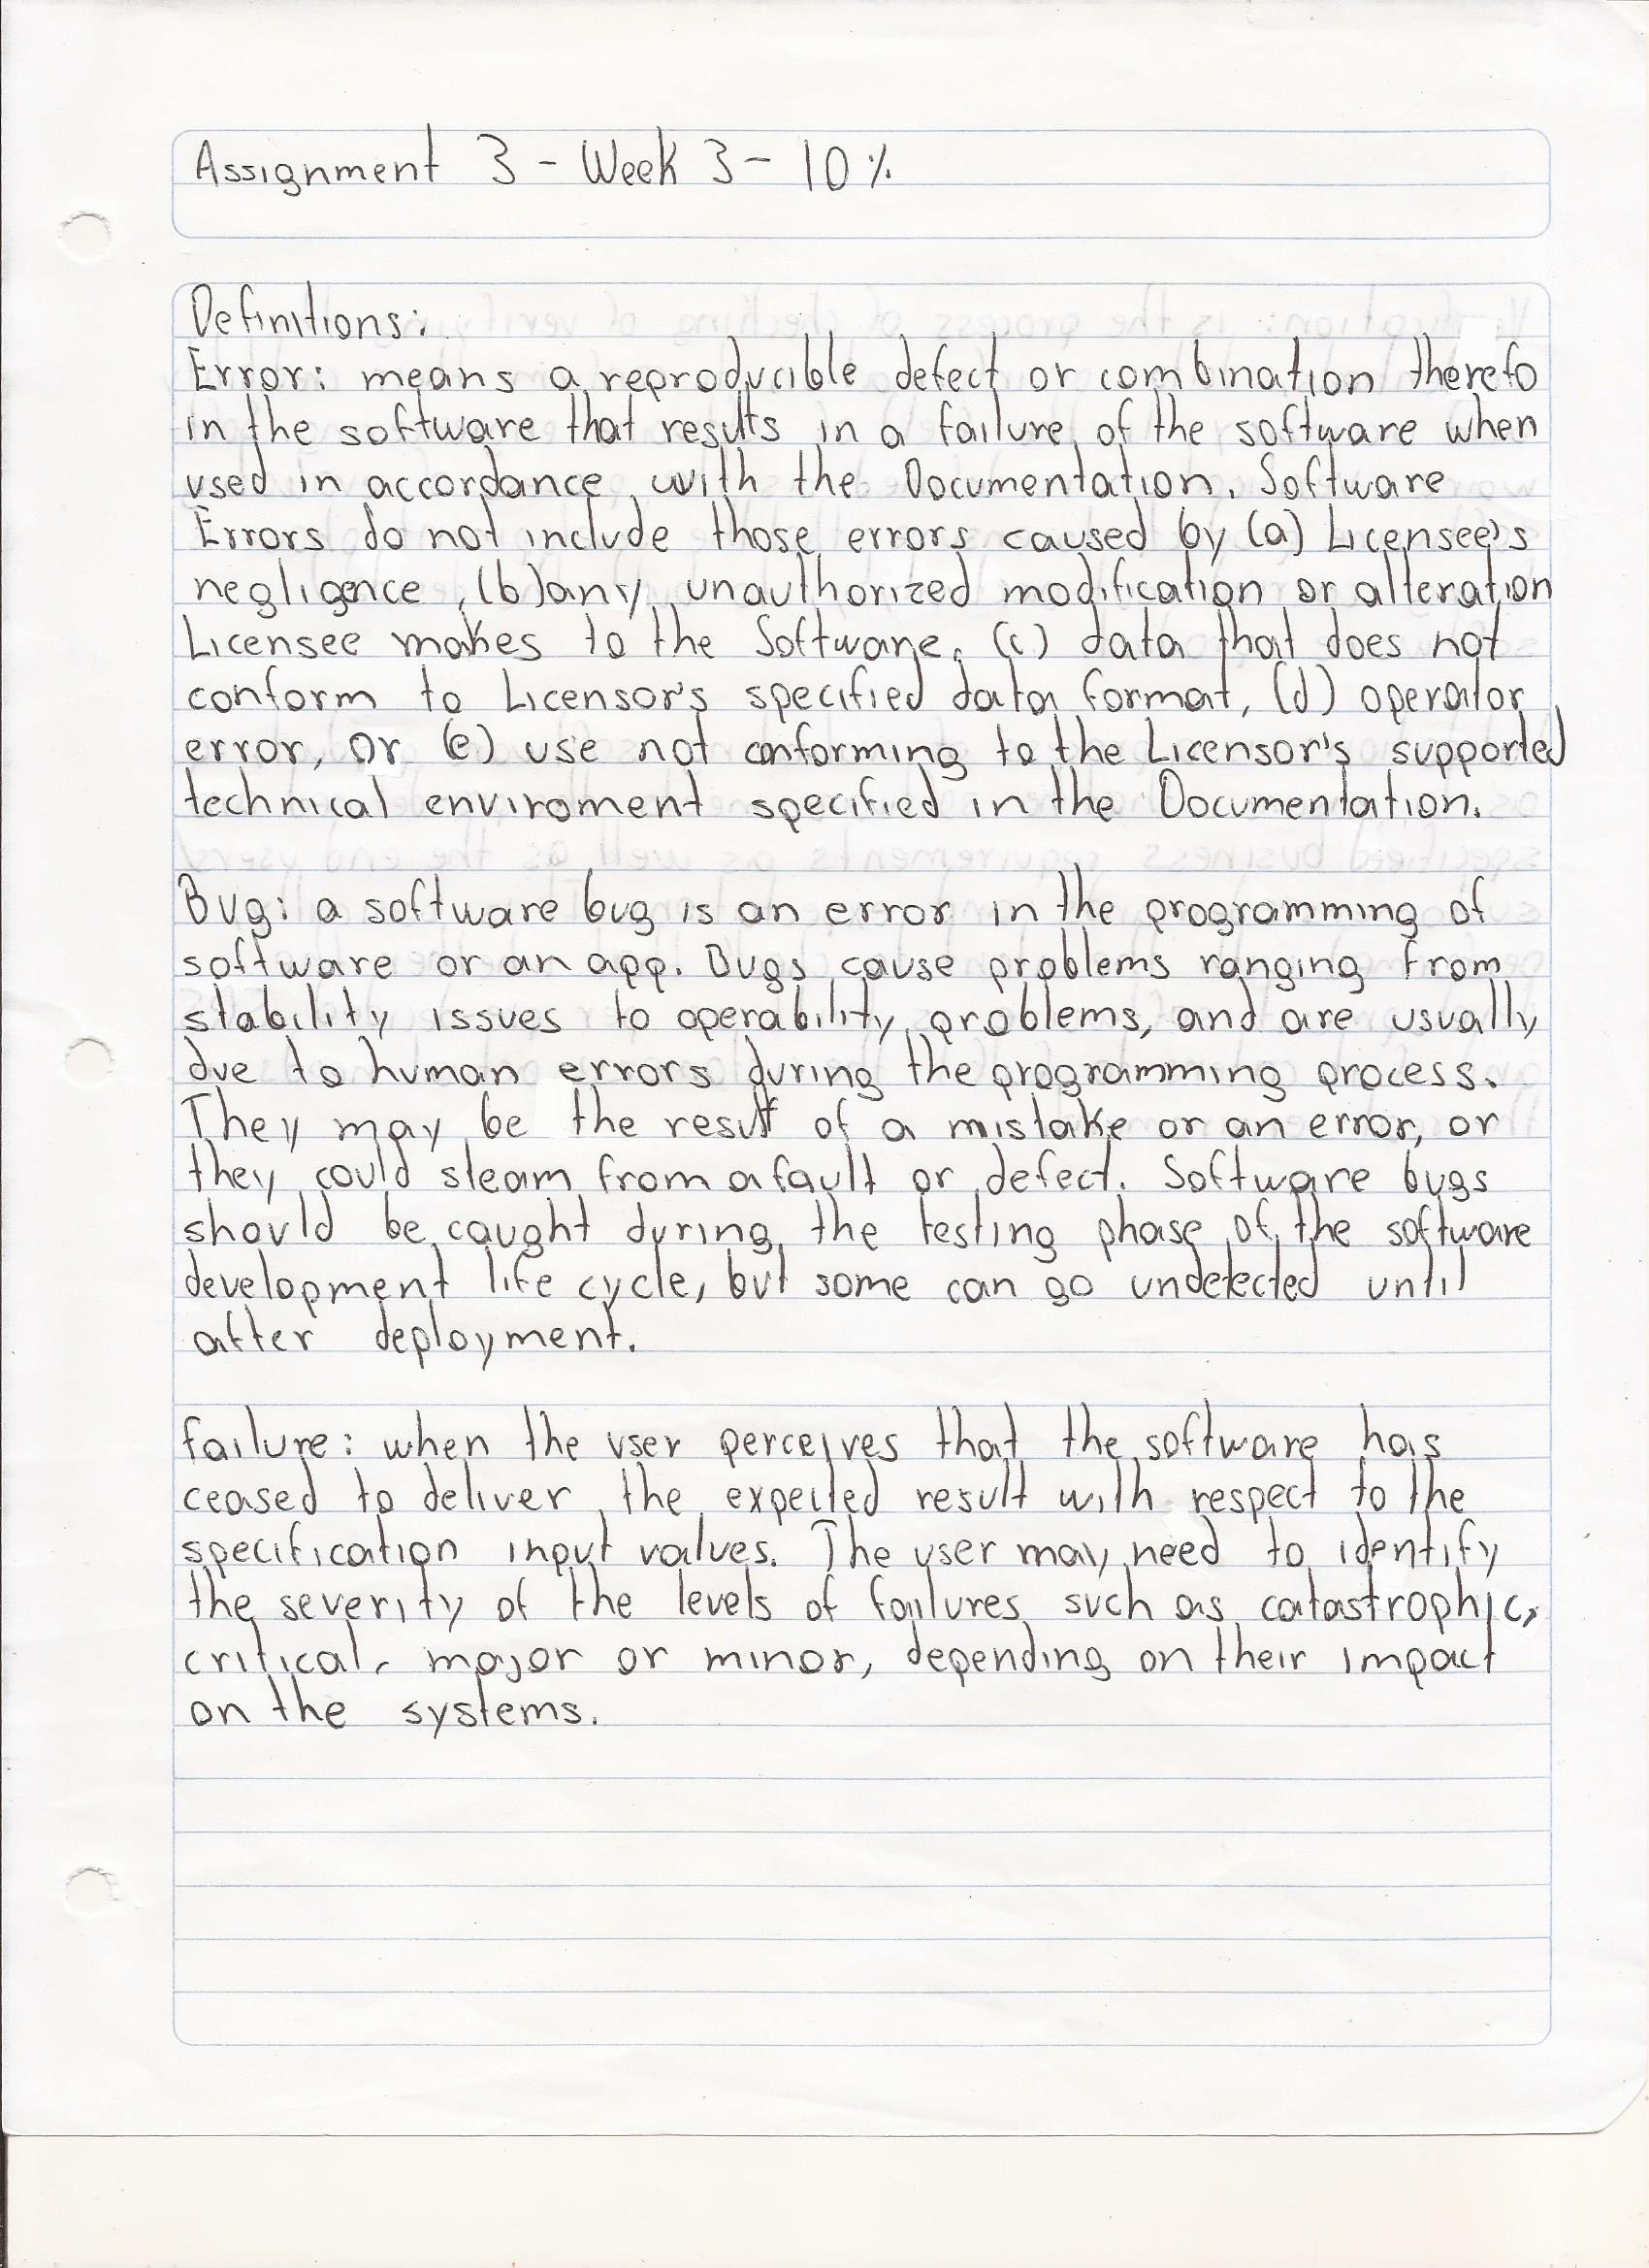 Assignment 3 - Week 3 - 10%
Definitions:
Error: means a reproducible defect or combination therefo
in the software that results in a failure of the software when
used in accordance with the Documentation. Software
Errors do not include those errors caused by (a) Licensee's
negligence, (b) any unauthorized modification or alteration
Licensee makes to the Software, (c) data that does not
conform to Licensor's specified data format, (d) operator
error, or (e) use not conforming to the Licensor's supported
technical enviroment specified in the Documentation.
Bug: a software bug is an error in the programming of
software or an app. Bugs cause problems ranging from
stability issues to operability problems, and are usually
due to human errors during the programming process.
They may be the result of a mistake or an error, or
they could steam from a fault or defect. Software bugs
should be caught during the testing phase of the software
development life cycle, but some can go undetected until
after deployment.
Failure: when the user perceives that the software has
ceased to deliver the expected result with respect to the
specification input values. The user may need to identify
the severity of the levels of failures such as catastrophic,
critical, major or minor, depending on their impact
on the systems.